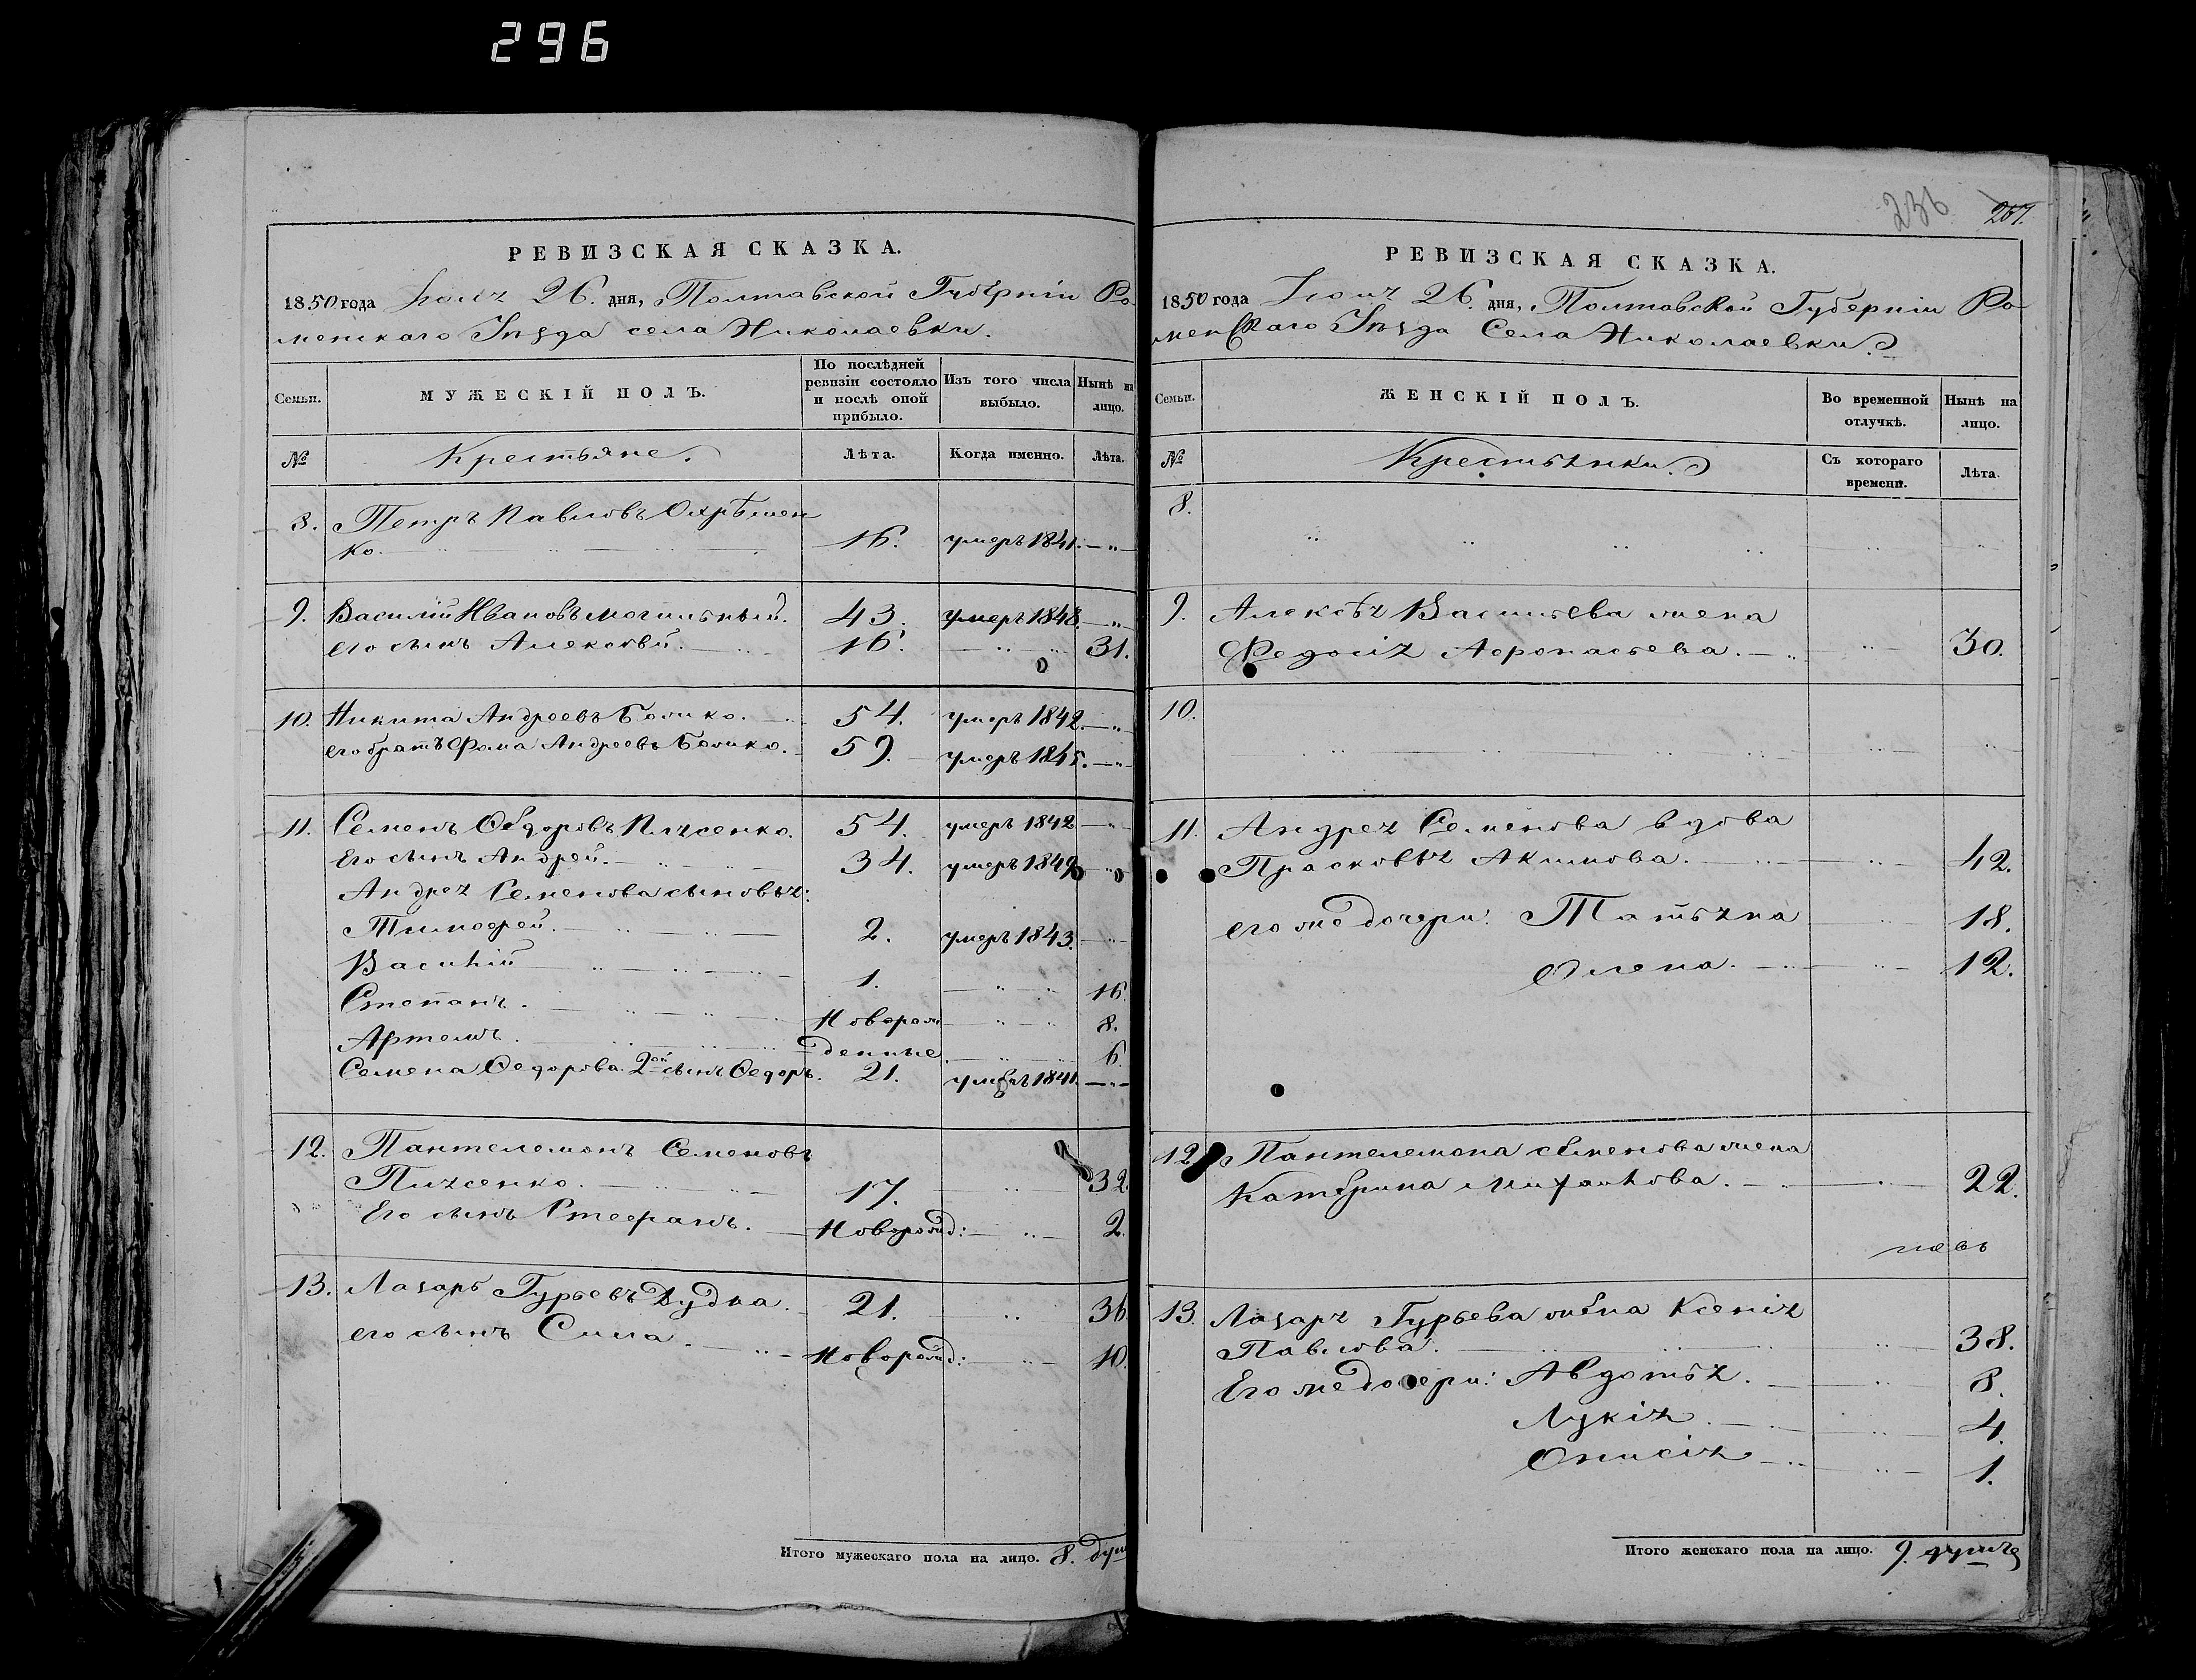 296
РЕВИЗСКАЯ СКАЗКА.
1850 года Іюля 26. дня, Полтавской Губерніи Ро-
менскаго Уѣзда села Николаевки.
Семьи.
МУЖЕСКІЙ ПОЛЪ.
По послѣдней ревизіи состояло и послѣ оной прибыло.
Изъ того числа выбыло.
Нынѣ на лицо.
№
Крестьяне.
Лѣта.
Когда именно.
Лѣта.
8. Петръ Павловъ Охрѣмен
ко. 16. умеръ 1841.
9. Василій Ивановъ Могильный. 43. умеръ 1848.
его сынъ Алексѣй. 16. 31.
10. Никита Андреевъ Бошко. 54. умеръ 1842.
его братъ Фома Андреевъ Бошко. 59. умеръ 1845.
11. Семенъ Ѳедоровъ Плясенко. 54. умеръ 1842
Его сынъ Андрей. 34. умеръ 1849
Андрея Семенова сыновья:
Тимофей. 2. умеръ 1843.
Василій 1. 16.
Степанъ. Новорож 8.
Артемъ. денные 6.
Семена Ѳедорова 2ой сынъ Ѳедоръ. 21. умеръ 1841.
12. Пантелемонъ Семеновъ
Плясенко. 17. 32.
Его сынъ Стефанъ. Новорожд: 2.
13. Лазарь Гурьевъ Дудка. 21. 36
его сынъ Сила. Новорожд: 10.
Итого мужескаго пола на лицо. 8. душ
236 267.
РЕВИЗСКАЯ СКАЗКА.
1850 года Іюля 26. дня, Полтавской Губерніи Ро-
менскаго Уѣзда Села Николаевки.
Семьи.
ЖЕНСКІЙ ПОЛЪ.
Во временной отлучкѣ.
Нынѣ на лицо.
№
Крестьянки.
Съ котораго времени.
Лѣта.
8.
9. Алексѣя Васильева жена
Федосія Афонасьева. 30.
10.
11. Андрея Семенова вдова
Прасковья Акимова. 42.
его же дочери: Татьяна 18.
Олена. 12.
12. Пантелемона Семенова жена
Катерина Михайлова. 22.
13. Лазаря Гурьева жена Ксенія
Павлова. 38.
Его же дочери: Авдотья. 8.
Лукія. 4.
Онисія 1.
Итого женскаго пола на лицо. 9. душъ